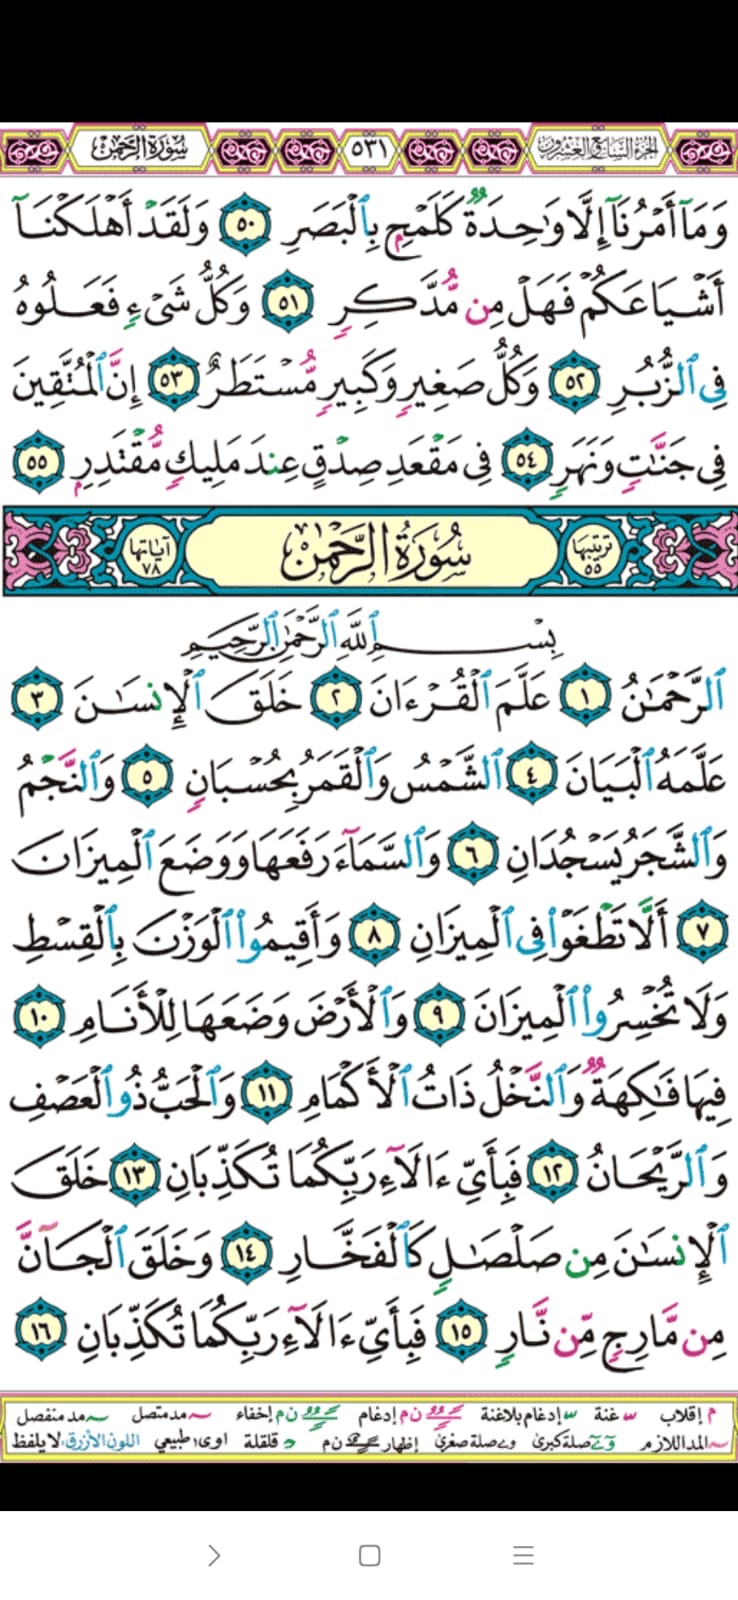 الجزء السابع والعشرون ٥٣١ سورة الرحمن
وَمَآ أَمْرُنَآ إِلَّا وَٰحِدَةٌ كَلَمْحٍۭ بِٱلْبَصَرِ ٥٠ وَلَقَدْ أَهْلَكْنَآ
أَشْيَاعَكُمْ فَهَلْ مِن مُّدَّكِرٍ ٥١ وَكُلُّ شَىْءٍ فَعَلُوهُ
فِى ٱلزُّبُرِ ٥٢ وَكُلُّ صَغِيرٍ وَكَبِيرٍ مُّسْتَطَرٌ ٥٣ إِنَّ ٱلْمُتَّقِينَ
فِى جَنَّٰتٍ وَنَهَرٍ ٥٤ فِى مَقْعَدِ صِدْقٍ عِندَ مَلِيكٍ مُّقْتَدِرٍۭ ٥٥
ترتيبها ٥٥ سُورَةُ الرَّحْمٰن آياتها ٧٨
بِسْمِ ٱللَّهِ ٱلرَّحْمَٰنِ ٱلرَّحِيمِ
ٱلرَّحْمَٰنُ ١ عَلَّمَ ٱلْقُرْءَانَ ٢ خَلَقَ ٱلْإِنسَٰنَ ٣
عَلَّمَهُ ٱلْبَيَانَ ٤ ٱلشَّمْسُ وَٱلْقَمَرُ بِحُسْبَانٍ ٥ وَٱلنَّجْمُ
وَٱلشَّجَرُ يَسْجُدَانِ ٦ وَٱلسَّمَآءَ رَفَعَهَا وَوَضَعَ ٱلْمِيزَانَ
٧ أَلَّا تَطْغَوْا۟ فِى ٱلْمِيزَانِ ٨ وَأَقِيمُوا۟ ٱلْوَزْنَ بِٱلْقِسْطِ
وَلَا تُخْسِرُوا۟ ٱلْمِيزَانَ ٩ وَٱلْأَرْضَ وَضَعَهَا لِلْأَنَامِ ١٠
فِيهَا فَٰكِهَةٌ وَٱلنَّخْلُ ذَاتُ ٱلْأَكْمَامِ ١١ وَٱلْحَبُّ ذُو ٱلْعَصْفِ
وَٱلرَّيْحَانُ ١٢ فَبِأَىِّ ءَالَآءِ رَبِّكُمَا تُكَذِّبَانِ ١٣ خَلَقَ
ٱلْإِنسَٰنَ مِن صَلْصَٰلٍ كَٱلْفَخَّارِ ١٤ وَخَلَقَ ٱلْجَآنَّ
مِن مَّارِجٍ مِّن نَّارٍ ١٥ فَبِأَىِّ ءَالَآءِ رَبِّكُمَا تُكَذِّبَانِ ١٦
م إقلاب غنة إدغام بلاغنة ن م إدغام ن م إخفاء مد متصل مد منفصل
المد اللازم صلة كبرى صلة صغرى إظهار ن م قلقلة اوى طبيعي اللون الأزرق: لا يلفظ